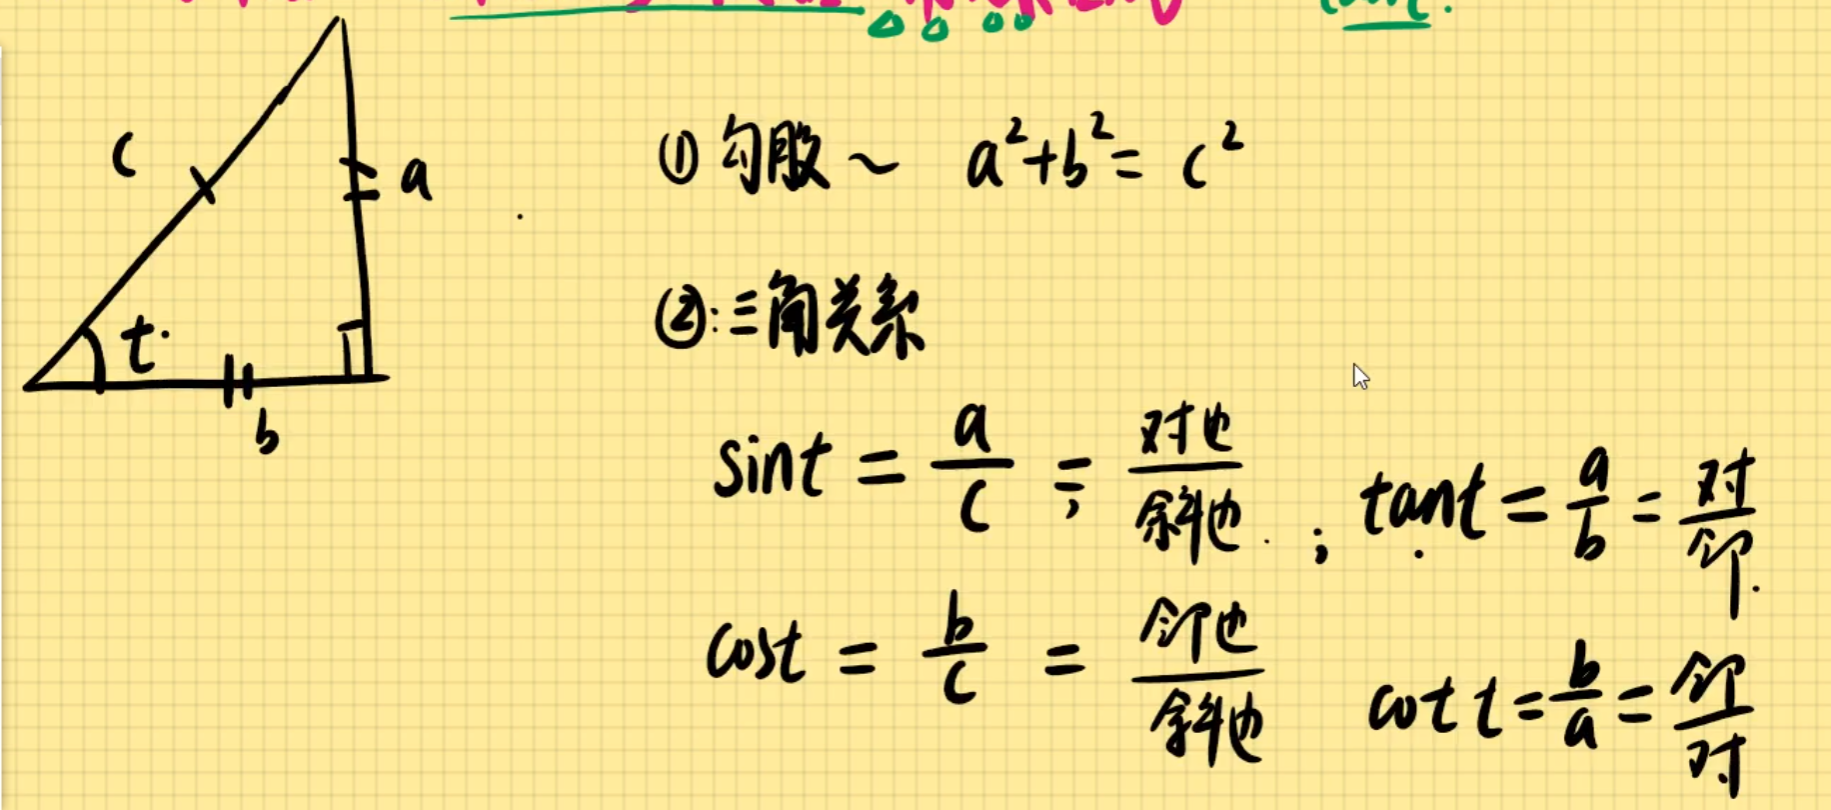 tant.
c
a
t.
b
① 勾股~ a²+b²= c²
②:三角关系
sint = a/c = 对边/斜边 ; tant = a/b = 对/邻.
cost = b/c = 邻边/斜边
cot t = b/a = 邻/对